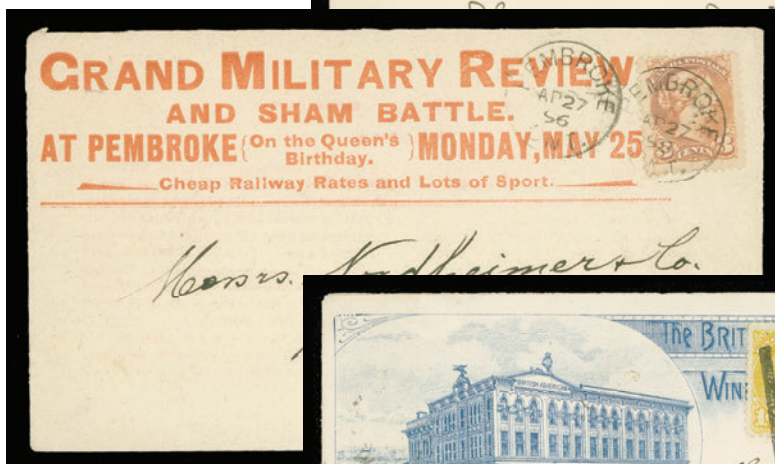 GRAND MILITARY REVIEW
AND SHAM BATTLE.
AT PEMBROKE {On the Queen's Birthday.} MONDAY, MAY 25
Cheap Railway Rates and Lots of Sport.
PEMBROKE
AP 27
96
ONT.
EMBROKE
AP 27
3 CENTS 3
Messrs. Nordheimer & Co.
The BRIT
WIN
BRITISH AMERICAN